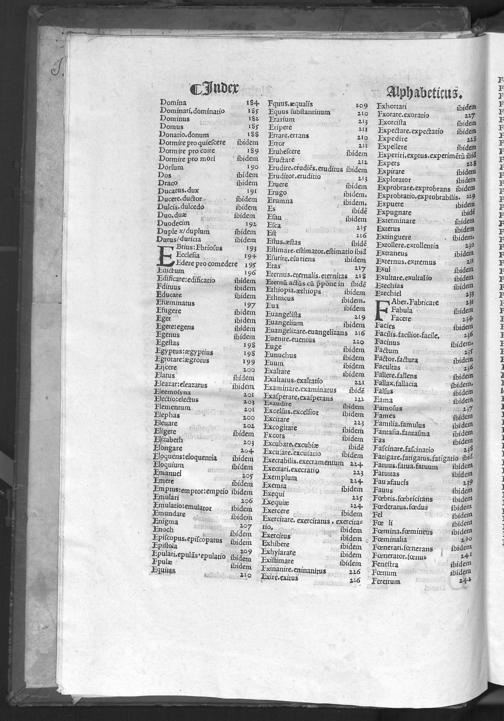 Index
Alphabeticus.
Domina 184
Dominari.dominatio 185
Dominus 182
Domus 185
Donatio.donum 188
Dormire pro quiescere ibidem
Dormire pro coire 189
Dormire pro mori ibidem
Dorsum 190
Dos ibidem
Draco ibidem
Ducatus.dux 191
Ducere.ductor ibidem
Dulcis.dulcedo ibidem
Duo.duæ ibidem
Duodecim 192
Duplex/duplum ibidem
Durus/duricia ibidem
Ebrius:Ebriosus 193
Ecclesia 194
Edere pro comedere 195
Edictum 196
Edificare:edificatio ibidem
Educare ibidem
Effeminatus 197
Effugere ibidem
Eger ibidem
Egere:egens ibidem
Egenus ibidem
Egestas 198
Egyptus:ægyptius 198
Egrotare:ægrotus 199
Eijcere 200
Elatus ibidem
Eleazar:eleazarus ibidem
Eleemosyna 201
Electio:electus 201
Elementum 201
Elephas 200
Eligere ibidem
Elisabeth 203
Elongare 204
Eloquens:eloquentia ibidem
Eloquium ibidem
Emanuel 205
Emere ibidem
Emptus:emptor:emptio ibidem
Emulari 206
Emulatio:emulator ibidem
Emundare ibidem
Enigma 207
Enoch ibidem
Episcopus.episcopatus ibidem
Epistola 209
Epulari.epulæ:epulatio ibidem
Epulæ ibidem
Equitas 210
Equus.æqualis 209
Equus substantiuum 210
Erarium 213
Eripere 211
Errare.errans 210
Error 211
Erubescere ibidem
Eructare 212
Eruditor.eruditio 213
Eruere ibidem
Erugo ibidem
Erumna ibidem.
Es ibidē
Esau ibidem
Esca 215
Estus.æstas ibidē
Estimare.estimator.estimatio ibid
Esurire.esuriens ibidem
Eternus.eternalis.eternitas 218
Ethiopia.æthiops ibidem
Ethnicus ibidem.
Eua ibidem
Euangelista 219
Euangelium ibidem
Euangelizare.euangelizans 216
Euenire.euentus 220
Euge ibidem
Eunuchus ibidem
Exaltare ibidem
Exaltatus.exaltatio 221
Examinare.examinatus ibidē
Exasperare.exasperans 222
Exaudire ibidem
Excelsus.excelsior ibidem
Excitare 223
Excogitare ibidem
Excors ibidem
Excubare.excubiæ ibidē
Excusare.excusatio ibidem
Execrabilis.execramentum 224
Execrari.execratio 223
Exemplum 224
Exequi 225
Exequiæ 224
Exercere ibidem
Exercitus ibidem
Exhibere ibidem
Exhylarare ibidem
Existimare ibidem
Exire.exitus 226
Exhortari ibidem
Exorare.exoratio 227
Exorcista ibidem
Expectare.expectatio ibidem
Expedire 228
Expellere ibidem
Expers 228
Expirare ibidem
Explorator ibidem
Exprobrare.exprobrans ibidem
Exprobratio.exprobrabilis. 229
Expuere ibidem
Expugnare ibidē
Exterminare ibidem
Exterus ibidem
Extinguere ibidem.
Extollere.extollentia 230
Extraneus ibidem
Externus.extremus 231
Exul ibidem
Exultare.exultatio ibidem
Ezechias ibidem
Ezechiel 233
Faber.Fabricare 232
Fabula ibidem
Facere 234
Facies ibidem
Facilis.facilior.facile. 236
Facinus ibidem.
Factum 235
Factor.factura ibidem
Facultas 236
Fallere.fallens ibidem
Fallax.fallacia ibidem.
Falsus ibidem
Fama ibidem
Famosus 237
Fames ibidem
Familia.famulus ibidem
Fantasia.fantasma ibidem
Fas ibidem
Fascinare.fascinatio 238
Fatigare.fatigatus.fatigatio ibid
Fatuus.fatua.fatuum ibidem
Fatuitas ibidem
Fauus ibidem
Febris.febricitans ibidem
Fœderatus.fœdus ibidem
Fel ibidem
Fœmina.fœmineus ibidem
Fœminalia 240
Fœnerari.fœnerans ibidem
Fœnerator.fœnus 241
Fenestra ibidem
Fœnum ibidem
Feretrum 242